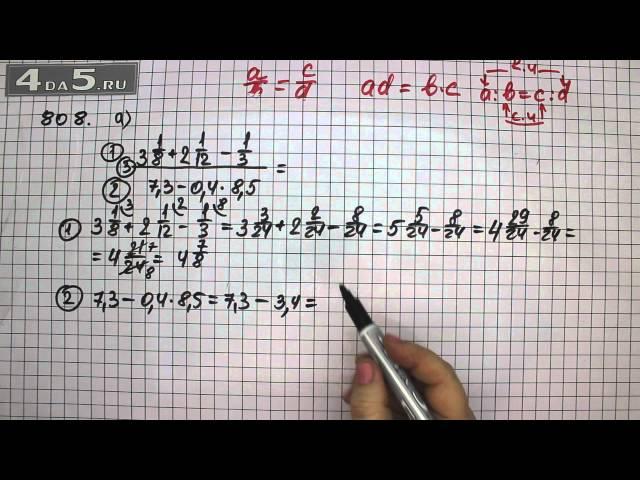 4DA5.RU
a/b = c/d ad = b·c a:b=c:d
к.ч
с.ч
808. а)
① 3 1/8 + 2 1/12 - 1/3
③ =
② 7,3 - 0,4 · 8,5
① 3 1/8 ³ + 2 1/12 ² - 1/3 ⁸ = 3 3/24 + 2 2/24 - 8/24 = 5 5/24 - 8/24 = 4 29/24 - 8/24 =
= 4 21/24 7/8 = 4 7/8
② 7,3 - 0,4 · 8,5 = 7,3 - 3,4 =